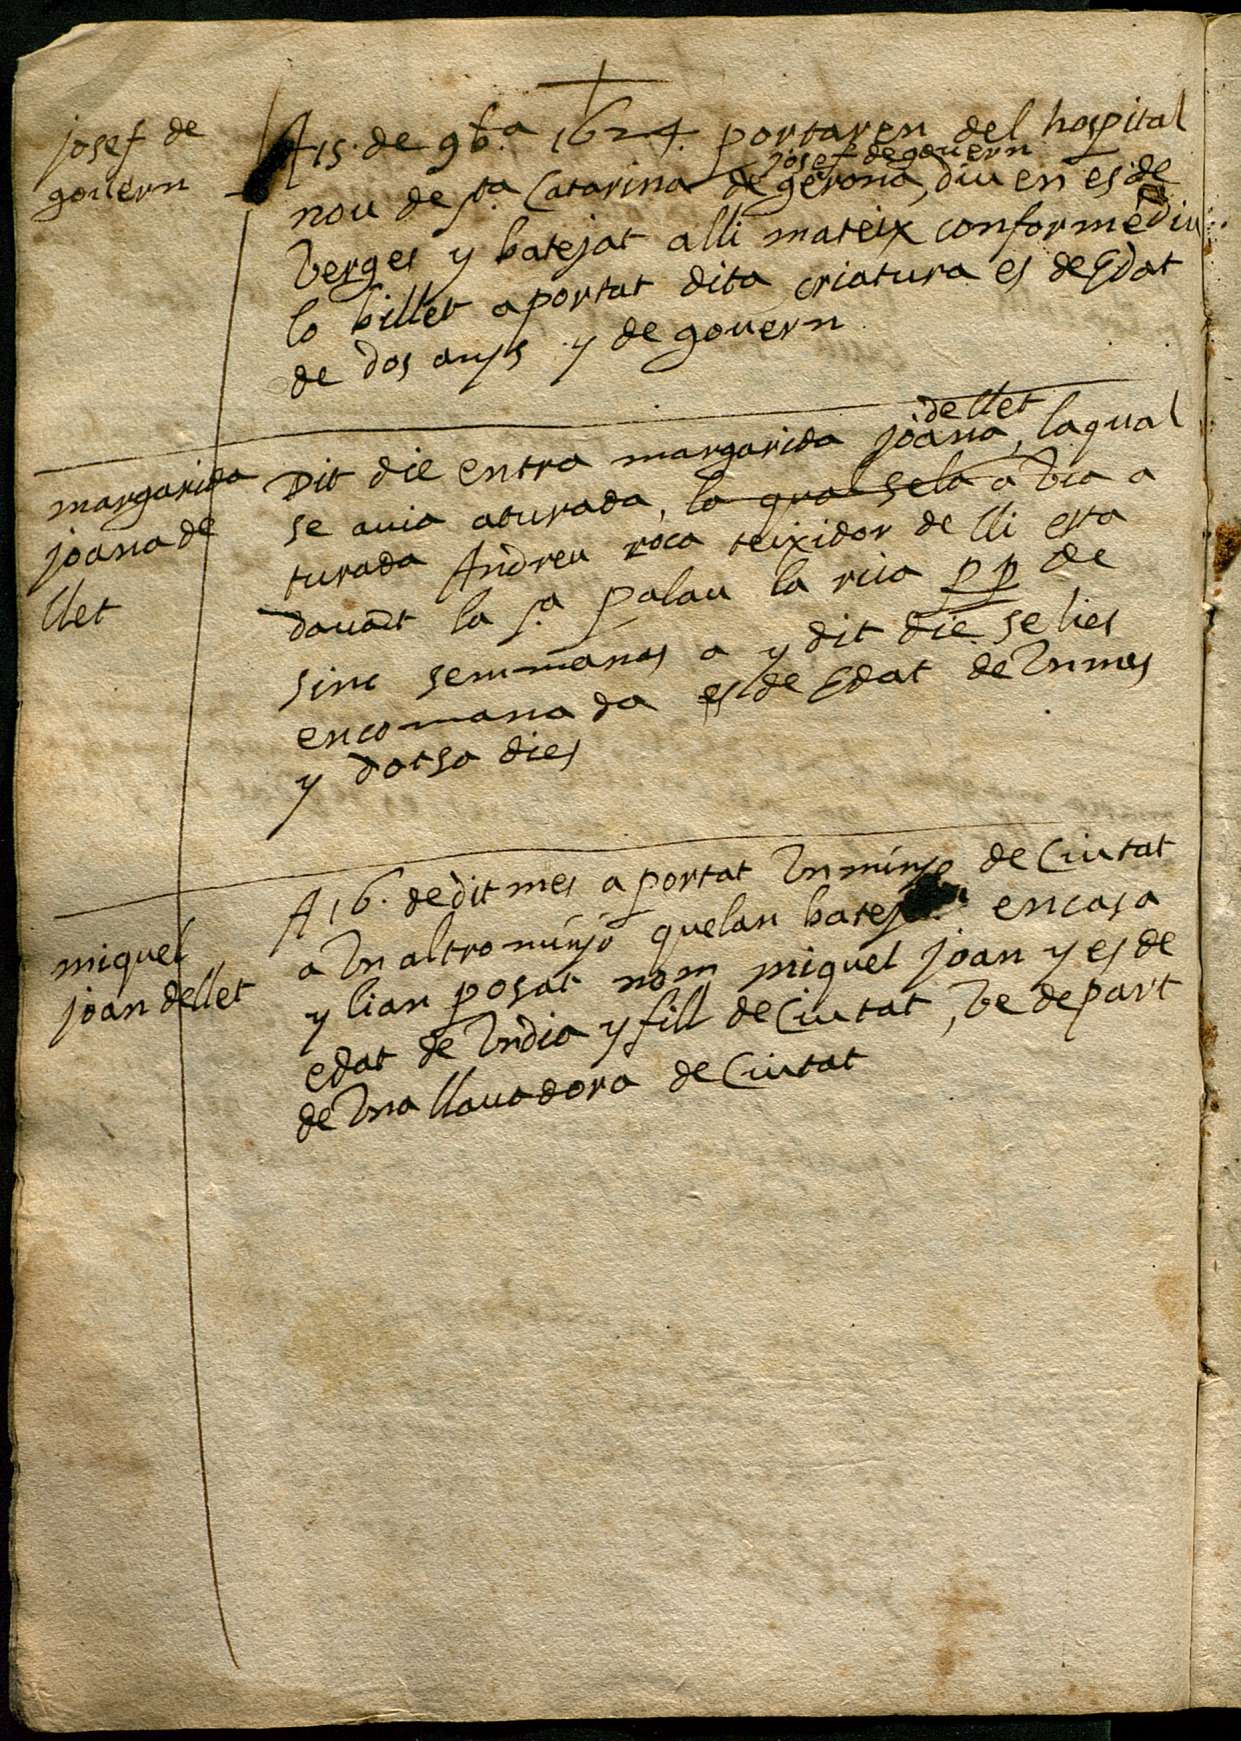 josef de
gouern
A 15. de 9b.ª 1624. portaren del hospital
josef de gouern
nou de s.ta Catarina de gerona, diuen es de
Verges y batejat alli mateix conforme diu
lo billet aportat dita criatura es de Edat
de dos anys y de gouern
margarida
joana de
llet
de llet
Dit die entra margarida joana, laqual
se auia aturada, la qual sela a Via a
turada Andreu roca teixidor de lli esta
dauāt la s.ª palau la riia p p de
sinc semmanas a y dit die se lies
encomanada es de Edat de Vn mes
y dotsa dies
miquel
joan de llet
A 16. de dit mes a portat Vn minyo de Ciutat
a Vn altro minyo quelan batejat en casa
y lian posat nom miquel joan y es de
edat de Vn dia y fill de Ciutat, Ve de part
de Vna llauadora de Ciutat